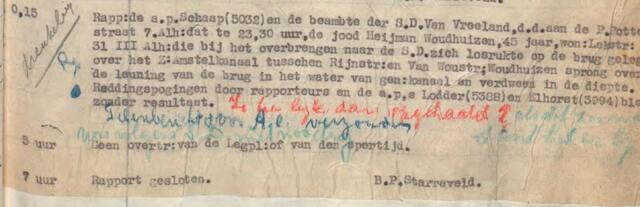 0,15 Rapp:de a.p.Schaap(5032)en de beambte der S.D.Van Vreeland,d.d.aan de P.Potte
straat 7.Alh:dat te 23,30 uur,de jood Heijman Woudhuizen,45 jaar,won:Lekstr:
31 III Alh:die bij het overbrengen naar de S.D.zich losrukte op de brug geleg
over het Z:Amstelkanaal tusschen Rijnstr:en Van Woustr;Woudhuizen sprong over
de leuning van de brug in het water van gen:kanaal en verdween in de diepte.
Reddingspogingen door rapporteurs en de a.p.s Lodder(5388)en Elhorst(3994)bl
zonder resultaat. Is het lijk dan opgehaald?
5 uur Geen overtr:van de Legpl:of van den spertijd.
7 uur Rapport gesloten. B.P.Starreveld.